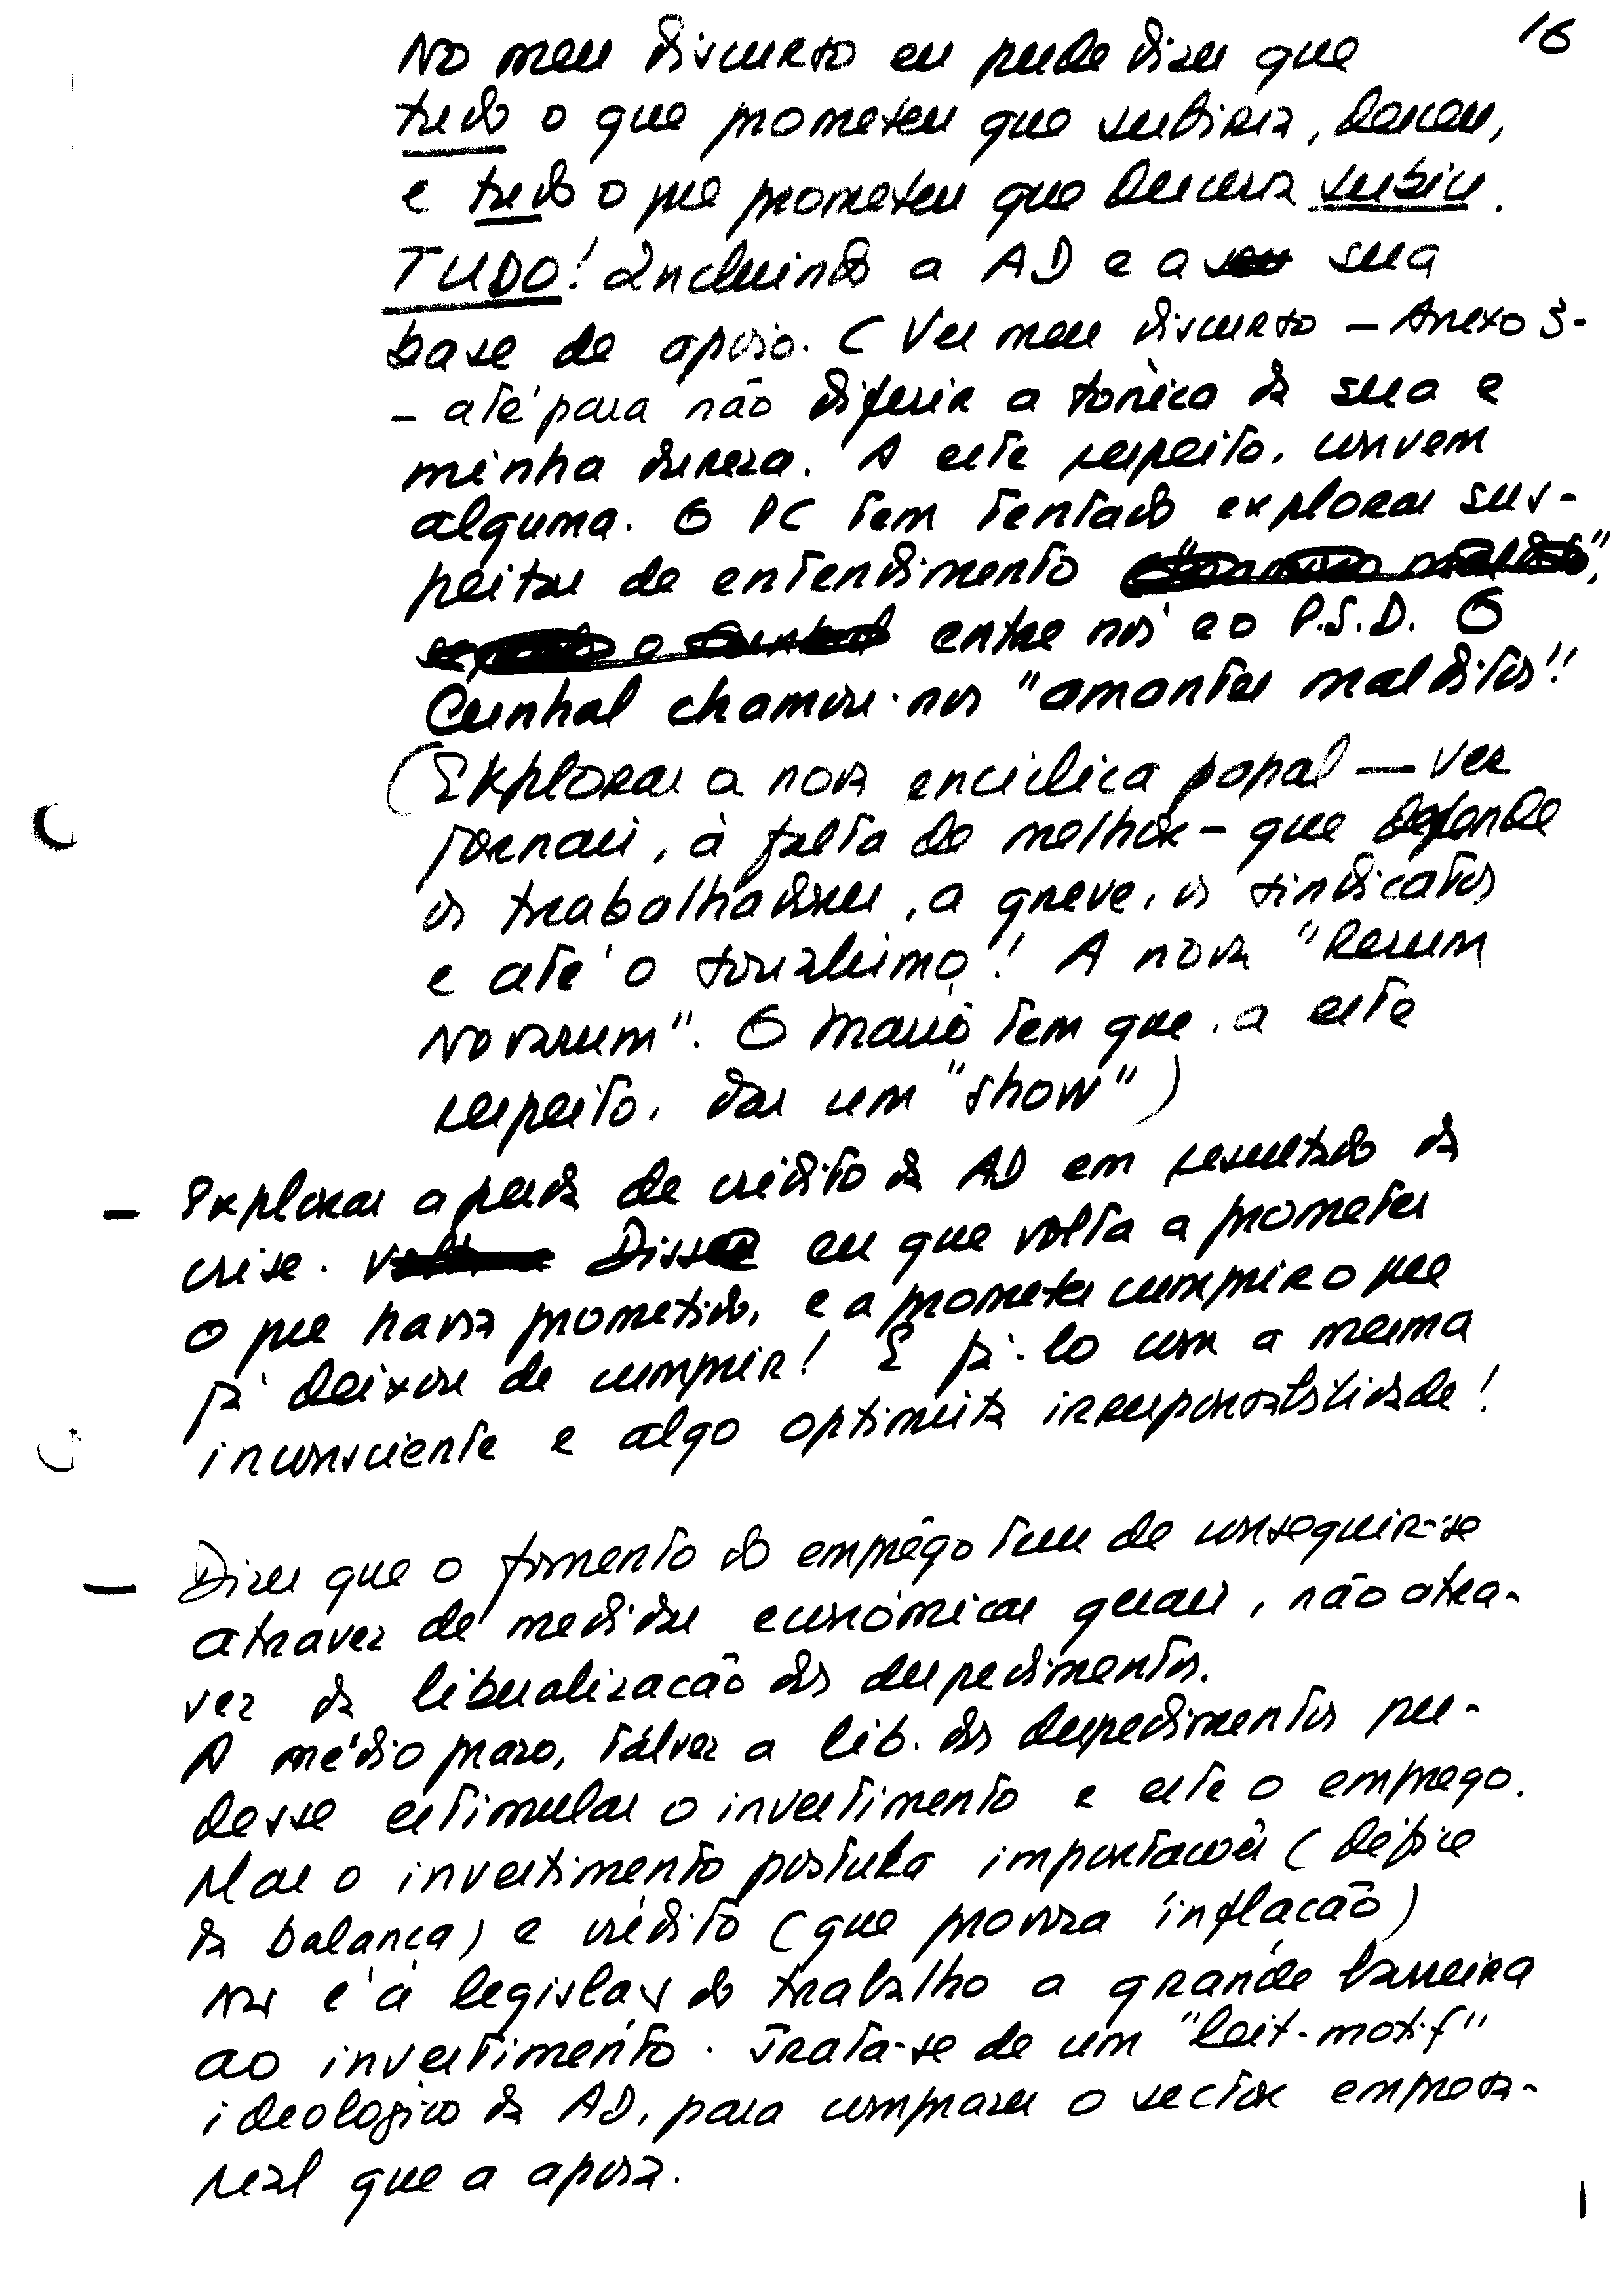 16
No meu discurso eu pude dizer que
tudo o que prometeu que subiria, desceu,
e tudo o que prometeu que desceria subiu.
TUDO! Incluindo a AD e a sua
base de apoio. (Ver meu discurso – Anexo 3-
- até para não diferir a tónica da sua e
minha dureza. A este respeito, convem
alguma. O PC tem tentado explorar sus-
peitas de entendimento
entre nós e o P.S.D. O
Cunhal chamou-nos "amantes malditos"!
(Explorar a nova enciclica papal — ver
jornais, à falta de melhor - que defende
os trabalhadores, a greve, os sindicatos
e até o socialismo! A nova "Rerum
Novarum". O Mário tem que, a este
respeito, dar um "show")
- Explorar a perda de crédito da AD em resultado da
crise. Disse eu que volta a prometer
o que havia prometido, e a prometer cumprir o que
já deixou de cumprir! E fá-lo com a mesma
inconsciente e algo optimista irresponsabilidade!
- Dizer que o fomento do emprêgo tem de conseguir-se
atravez de medidas económicas gerais, não atra-
vez da liberalizacão dos despedimentos.
A médio prazo, talvez a lib. dos despedimentos pu-
desse estimular o investimento e este o emprego.
Mas o investimento postula importacões (défice
da balança) e crédito (que provoca inflacão)
Não é a legislação do trabalho a grande barreira
ao investimento. Trata-se de um "leit-motif"
ideologico da AD, para comprazer o sector empresa-
rial que a apoia.